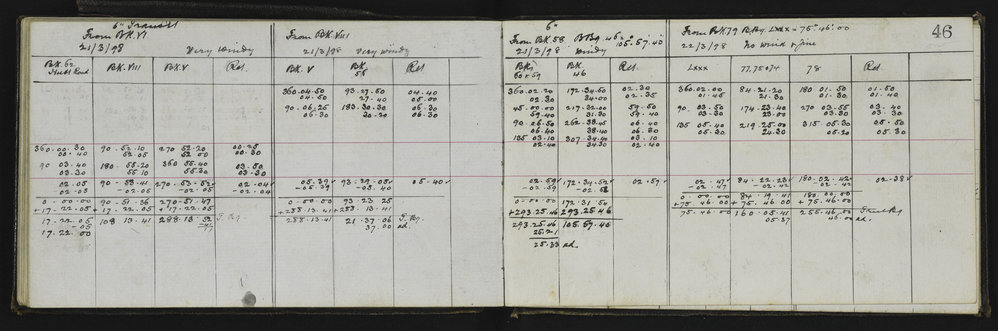 6" Transit
From BK. VI
21/3/98 Very windy
BK. 62 BK. VIII BK. V Ret.
360.00.30 90.52.10 270.52.20 00.25
00.40 52.05 52.00 00.30
90 03.40 180.55.20 360 55.40 03.50
03.30 55.10 55.30 03.30
02.05 90-53.41 270.53.52 02.04
-02.05 -02.05 -02.04
0.00.00 90.51.36 270.51.47
+17.22.05 +17.22.05 +17.22.05
17.22.05 108 13.41 288.13.52
-05
17.22.00
From BK. VIII
21/3/98 Very windy
BK. V BK. 58 Ret
360.04.50 93.27.50 04.40
04.50 27.40 05.00
90.06.25 183.30.30 06.30
06.30 30.20 06.30
05.39 93.29.05 05.40
-05.39 -05.40
0.00.00 93 23 25
+288.13.41 +288.13.41
288.13.41 21.37.06
37.00 ad.
6"
From BK. 58 BBg. 46 = 105.57.40
21/3/98 Windy
BKs 60 & 59 BK. 46 Ret.
360.02.20 172.34.50 02.30
02.30 34.00 02.35
45.00.00 217.32.00 59.50
59.40 31.30 59.40
90.06.50 262.38.45 06.40
06.40 38.40 06.30
135 03.10 307.34.40 03.10
02.40 34.30 02.40
02.59 172.34.52 02.57
-02.59 -02.58
0.00.00 172.31.54
+293.25.46 +293.25.46
293.25.46 105.57.40
25.21
25.33 ad.
From BK 79 BBg. LXXX = 75°.46'.00
22/3/98 No wind & fine
LXXX 77, 75 & 74 78 Ret.
360.02.00 84.21.20 180 01.50 01.50
01.45 21.30 01.30 01.40
90.03.50 174.23.40 270 03.55 03.40
03.30 23.00 03.30 03.30
135 05.40 219.25.00 315.05.30 05.50
05.30 24.30 05.20 05.30
02.47 84.22.28 180.02.42 02.38
-02.47 -02.42 -02.42
0.00.00 84.19.41 180.00.00
+75.46.00 +75.46.00 +75.46.00
75.46.00 160.05.41 255.46.00
05.37 46.00 ad.
46